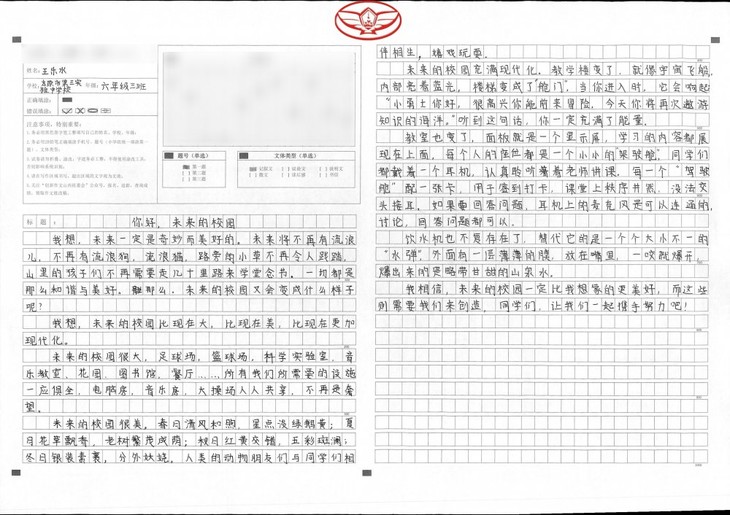 姓名：王乐水
学校：太原市第三实验中学校 年级：六年级三班
正确填涂：
错误填涂：
注意事项，特别重要：
题号（单选）
第一题
第二题
第三题
文体类型（单选）
记叙文
议论文
说明文
散文
书信
标题：你好，未来的校园
我想，未来一定是奇妙而美好的。未来将不再有流浪
儿，不再有流浪狗、流浪猫、路旁的小草不再令人践踏，
山里的孩子们不再需要走几十里路来学堂念书。一切都是
那么和谐与美好。难那么，未来的校园又会变成什么样子
呢？
我想，未来的校园比现在大，比现在美，比现在更加
现代化。
未来的校园很大，足球场，篮球场，科学实验室、音
乐教室、花园、图书馆、餐厅……所有我们所需要的设施
一应俱全，电脑房、音乐房、大操场人人共享，不再是奢
望。
未来的校园很美。春日清风和煦，星点浅绿鹅黄；夏
日花草飘香，老树繁茂成荫；秋日红黄交错，五彩斑斓；
冬日银装素裹，分外妖娆。人类的动物朋友们与同学们相
伴相生，嬉戏玩耍。
未来的校园充满现代化。教学楼变了，就像宇宙飞船，
内部亮着蓝光，楼梯变成了“舱门”，当你进入时，它会响起
“小勇士你好，很高兴你能前来冒险，今天你将再次遨游
知识的海洋。”听到这句话，你一定充满了能量。
教室也变了，面板就是一个显示屏，学习的内容都展
现在上面，每个人的座位都是一个小小的“驾驶舱”，同学们
都戴着一个耳机，认真聆听着老师讲课，每一个“驾驶
舱”配一张卡，用于签到打卡，课堂上秩序井然，没法交
头接耳。如果要回答问题，耳机上的麦克风是可以连通的，
讨论、回答问题都可以。
饮水机也不复存在了，替代它的是一个个大小不一的
“水弹”，外面有一层薄薄的膜，放在嘴里，一咬就爆开，
爆出来的是略带甘甜的山泉水。
我相信，未来的校园一定比我想象的更美好，而这些
则需要我们来创造，同学们，让我们一起携手努力吧！